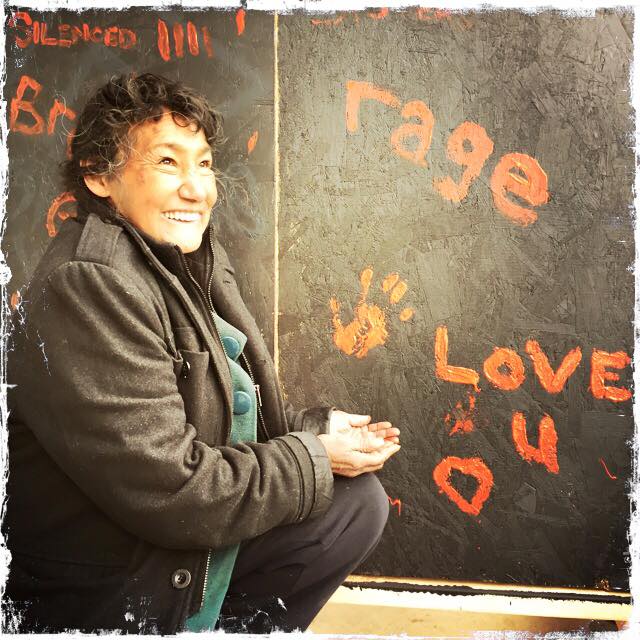 SILENCED
Br
rage
LOVE
U
O